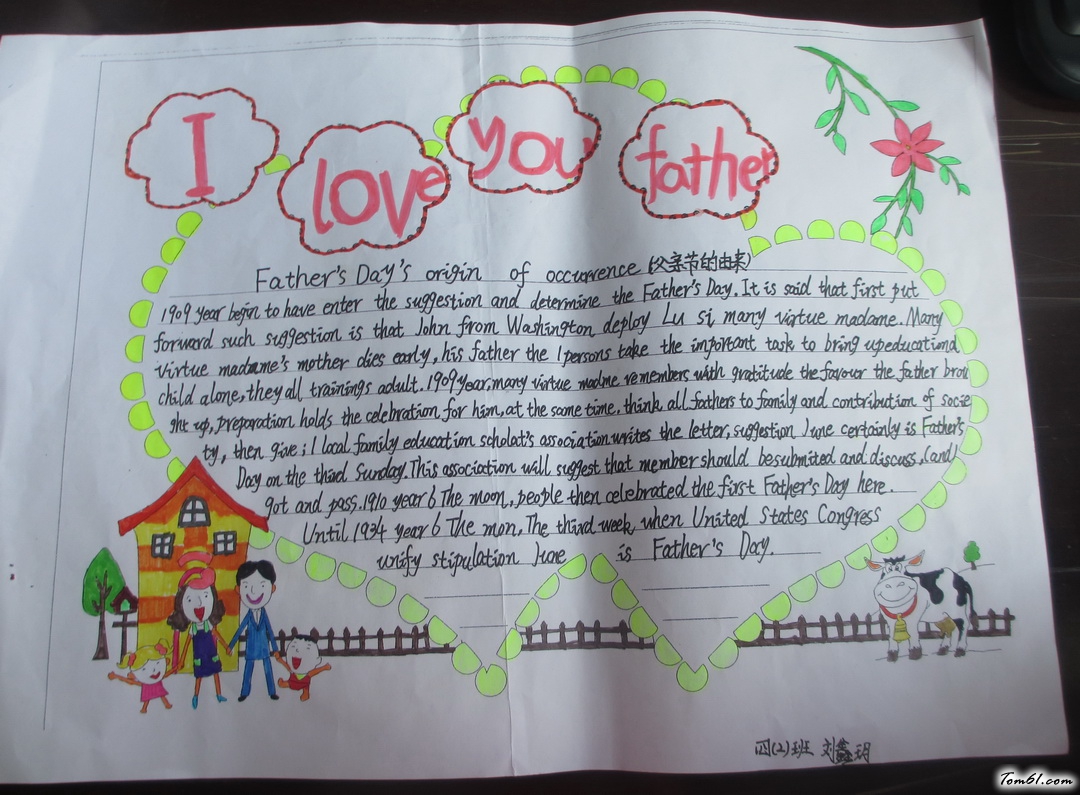 I love you father
Father's Day's origin of occurrence (父亲节的由来)
1909 year begin to have enter the suggestion and determine the Father's Day. It is said that first put
forward such suggestion is that John from Washington deploy Lu si many virtue madame. Many
virtue madame's mother dies early, his father the 1persons take the important task to bring upeducationd
child alone, they all trainings adult. 1909 year, many virtue madme remembers with gratitude the favour the father brou
ght up, preparation holds the celebration for him, at the same time, think all fathers to family and contribution of socie
ty, then give; 1 local family education scholat's association writes the letter, suggestion June certainly is Father's
Day on the third Sunday. This association will suggest that member should besubmited and discuss, (and)
got and pass. 1910 year 6 The moon, people then celebrated the first Father's Day here.
Until 1934 year 6 The mon, The third week, when United States Congress
unify stipulation June is Father's Day.
四(2)班 刘鑫玥
Tom61.com